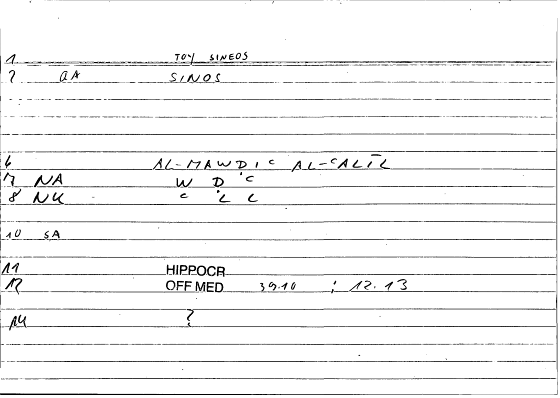 1 TOY SINEOS
2 GA SINOS
6 AL-MAWḌIʿ AL-ʿALĪL
7 NA W Ḍ ʿ
8 NK ʿ L L
10 SA
11 HIPPOCR
12 OFF MED 39.10 ; 12.13
14 ?